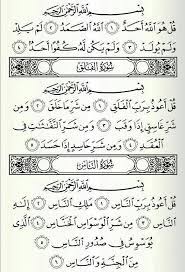 بِسْمِ ٱللَّهِ ٱلرَّحْمَٰنِ ٱلرَّحِيمِ
قُلْ هُوَ ٱللَّهُ أَحَدٌ ١ ٱللَّهُ ٱلصَّمَدُ ٢ لَمْ يَلِدْ
وَلَمْ يُولَدْ ٣ وَلَمْ يَكُن لَّهُۥ كُفُوًا أَحَدٌۢ ٤
سُورَةُ الفَلَقِ
بِسْمِ ٱللَّهِ ٱلرَّحْمَٰنِ ٱلرَّحِيمِ
قُلْ أَعُوذُ بِرَبِّ ٱلْفَلَقِ ١ مِن شَرِّ مَا خَلَقَ ٢ وَمِن
شَرِّ غَاسِقٍ إِذَا وَقَبَ ٣ وَمِن شَرِّ ٱلنَّفَّٰثَٰتِ فِى
ٱلْعُقَدِ ٤ وَمِن شَرِّ حَاسِدٍ إِذَا حَسَدَ ٥
سُورَةُ النَّاسِ
بِسْمِ ٱللَّهِ ٱلرَّحْمَٰنِ ٱلرَّحِيمِ
قُلْ أَعُوذُ بِرَبِّ ٱلنَّاسِ ١ مَلِكِ ٱلنَّاسِ ٢ إِلَٰهِ
ٱلنَّاسِ ٣ مِن شَرِّ ٱلْوَسْوَاسِ ٱلْخَنَّاسِ ٤ ٱلَّذِى
يُوَسْوِسُ فِى صُدُورِ ٱلنَّاسِ ٥
مِنَ ٱلْجِنَّةِ وَٱلنَّاسِ ٦